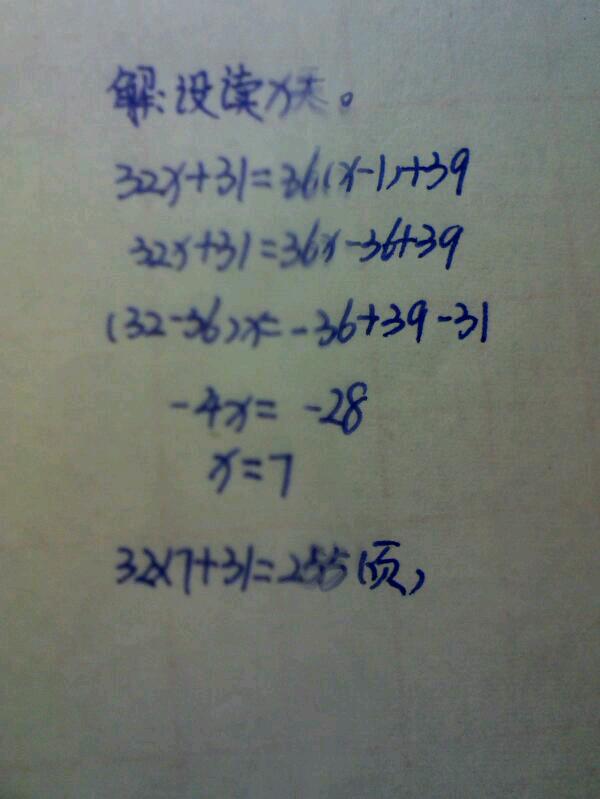 解:设读x天。
32x+31=36(x-1)+39
32x+31=36x-36+39
(32-36)x=-36+39-31
-4x= -28
x=7
32×7+31=255(页)